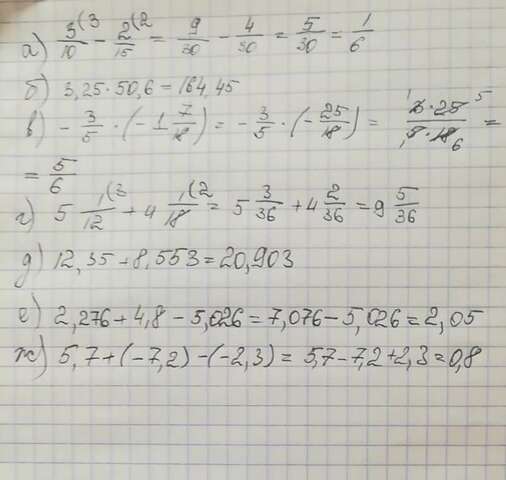 а) 3(3/10 - 2(2/15 = 9/30 - 4/30 = 5/30 = 1/6
б) 3,25·50,6 = 164,45
в) - 3/5 · (- 1 7/18) = - 3/5 · (- 25/18) = 1 3·25 5/1 5·18 6 =
= 5/6
г) 5 1(3/12 + 4 1(2/18 = 5 3/36 + 4 2/36 = 9 5/36
д) 12,35 + 8,553 = 20,903
е) 2,276 + 4,8 - 5,026 = 7,076 - 5,026 = 2,05
ж) 5,7 + (- 7,2) - (- 2,3) = 5,7 - 7,2 + 2,3 = 0,8